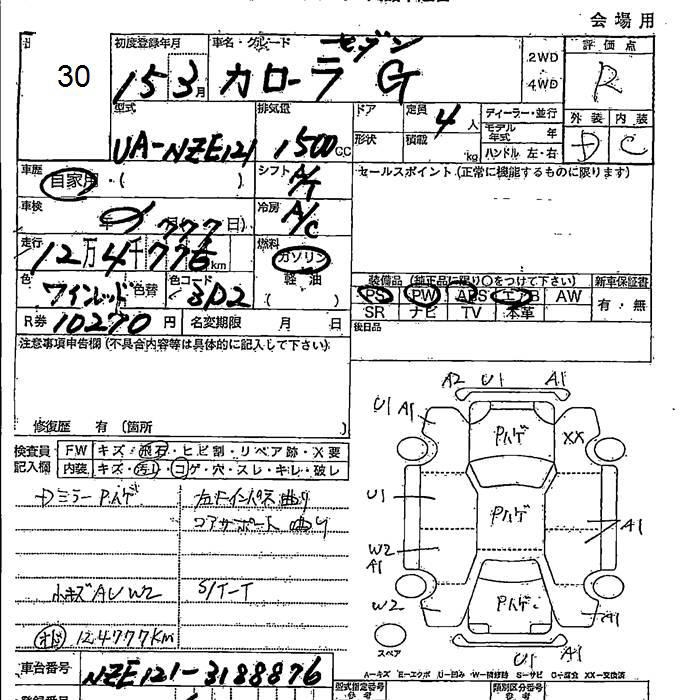 会場用
30
初度登録年月 15 3月
車名・グレード カローラ セブン G
2WD
4WD
評価点 R
外装 内装
D C
型式 UA-NZE121
排気量 1500CC
ドア
形状
定員 4人
積載 kg
ディーラー・並行
モデル年式 年
ハンドル 左・右
車歴 自家用 ( )
シフト A/T
セールスポイント(正常に機能するものに限ります)
車検 年 月 日)
冷房 A/C
走行 12万4千776km
燃料 ガソリン
軽油
色 ワインレッド 色替
色コード 3P2
装備品 (純正品に限り○をつけて下さい) 新車保証書
PS PW ABS エアB AW 有・無
SR ナビ TV 本革
R券 10270円 名変期限 月 日
後日品
注意事項申告欄(不具合内容等は具体的に記入して下さい)
修復歴 有 (箇所 )
検査員 FW キズ・飛石・ヒビ割・リペア跡・X要
記入欄 内装 キズ・汚れ・コゲ・穴・スレ・キレ・破レ
Dミラー Pハゲ
左Fインパネ曲り
コアサポート曲り
小キズAUW2 S/T-T
オド 124777Km
車台番号 NZE121-3188876
A2 U1 A1
U1 A1 Pハゲ XX
U1 Pハゲ A1
W2
A1
W2 Pハゲ A1
スペア
U1 A1
A-キズ E-エクボ U-凹み W-補修跡 S-サビ C-腐食 XX-交換済
登録番号
型式指定番号
類別区分番号